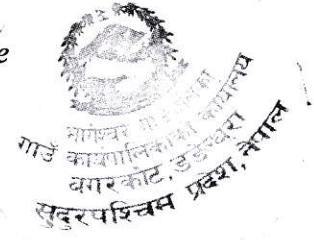 e
भागेश्वर गाउँपालिका
गाउँ कार्यपालिकाको कार्यालय
बगरकोट, डडेल्धुरा
सुदुरपश्चिम प्रदेश, नेपाल